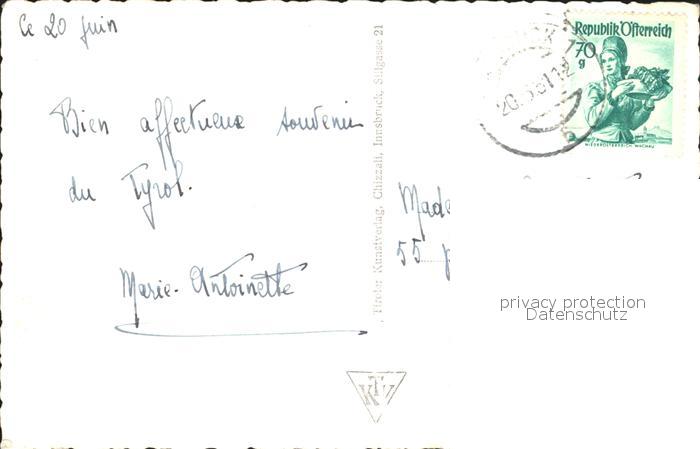 Ce 20 juin
Bien affectueux souvenir
du Tyrol.
Marie-Antoinette
Tiroler Kunstverlag, Chizzali, Innsbruck, Sillgasse 21
KTV
Republik Österreich
70
g
NIEDERÖSTERREICH, WACHAU
Made
55
privacy protection
Datenschutz